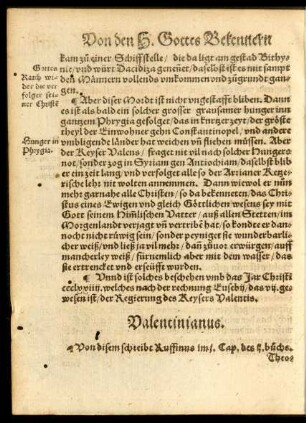 Von den H. Gottes Bekennern
kam zů einer Schiffstelle / die da ligt am gestad Bithy-
nie / vnd würt Dacidiza genenet / daselbst ist es mit sampt
den Männern vollends vmkommen vnd zů grundt gan-
gen.
Gottes
Rach wi-
der die ver-
folger sei-
ner Christē
¶ Aber diser Mordt ist nicht vngestrafft bliben. Dann
es ist als bald ein solcher grosser grausamer hunger inn
gantzem Phrygia gefolget / das in kurtzer zeyt / der gröste
theyl der Einwohner gehn Constantinopel / vnd andere
vmbligende länder hat weichen vñ fliehen müssen. Aber
der Keyser Valens / fraget nit vil nach solcher Hungers-
not / sonder zog in Syriam gen Antiochiam / daselbst blib
er ein zeyt lang / vnd verfolget alle so der Arrianer Ketze-
rische lehr nit wolten annemmen. Dann wiewol er nun
mehr garnahe alle Christen / so da bekenneten / das Chri-
stus eines Ewigen vnd gleich Göttlichen wesens sey mit
Gott seinem Him̃lischen Vatter / auß allen Stetten / im
Morgenlandt verjagt vñ vertribē hat / so konde er dan-
nocht nicht rüwig sein / sonder peyniget sie wunderbarli-
cher weiß / vnd ließ ja vil mehr / dañ zůuor erwürgen / auff
mancherley weiß / fürnemlich aber mit dem wasser / das
sie ertrencket vnd erseüfft wurden.
Hunger in
Phrygia.
¶ Vnnd ist solches beschehen vmb das Jar Christi
welches nach der rechnung Eusebij / das vij. ge-
wesen ist / der Regierung des Keysers Valentis.
Valentinianus.
¶ Von disem schreibt Ruffinus im j. Cap. des ij. bůchs.
Theo-